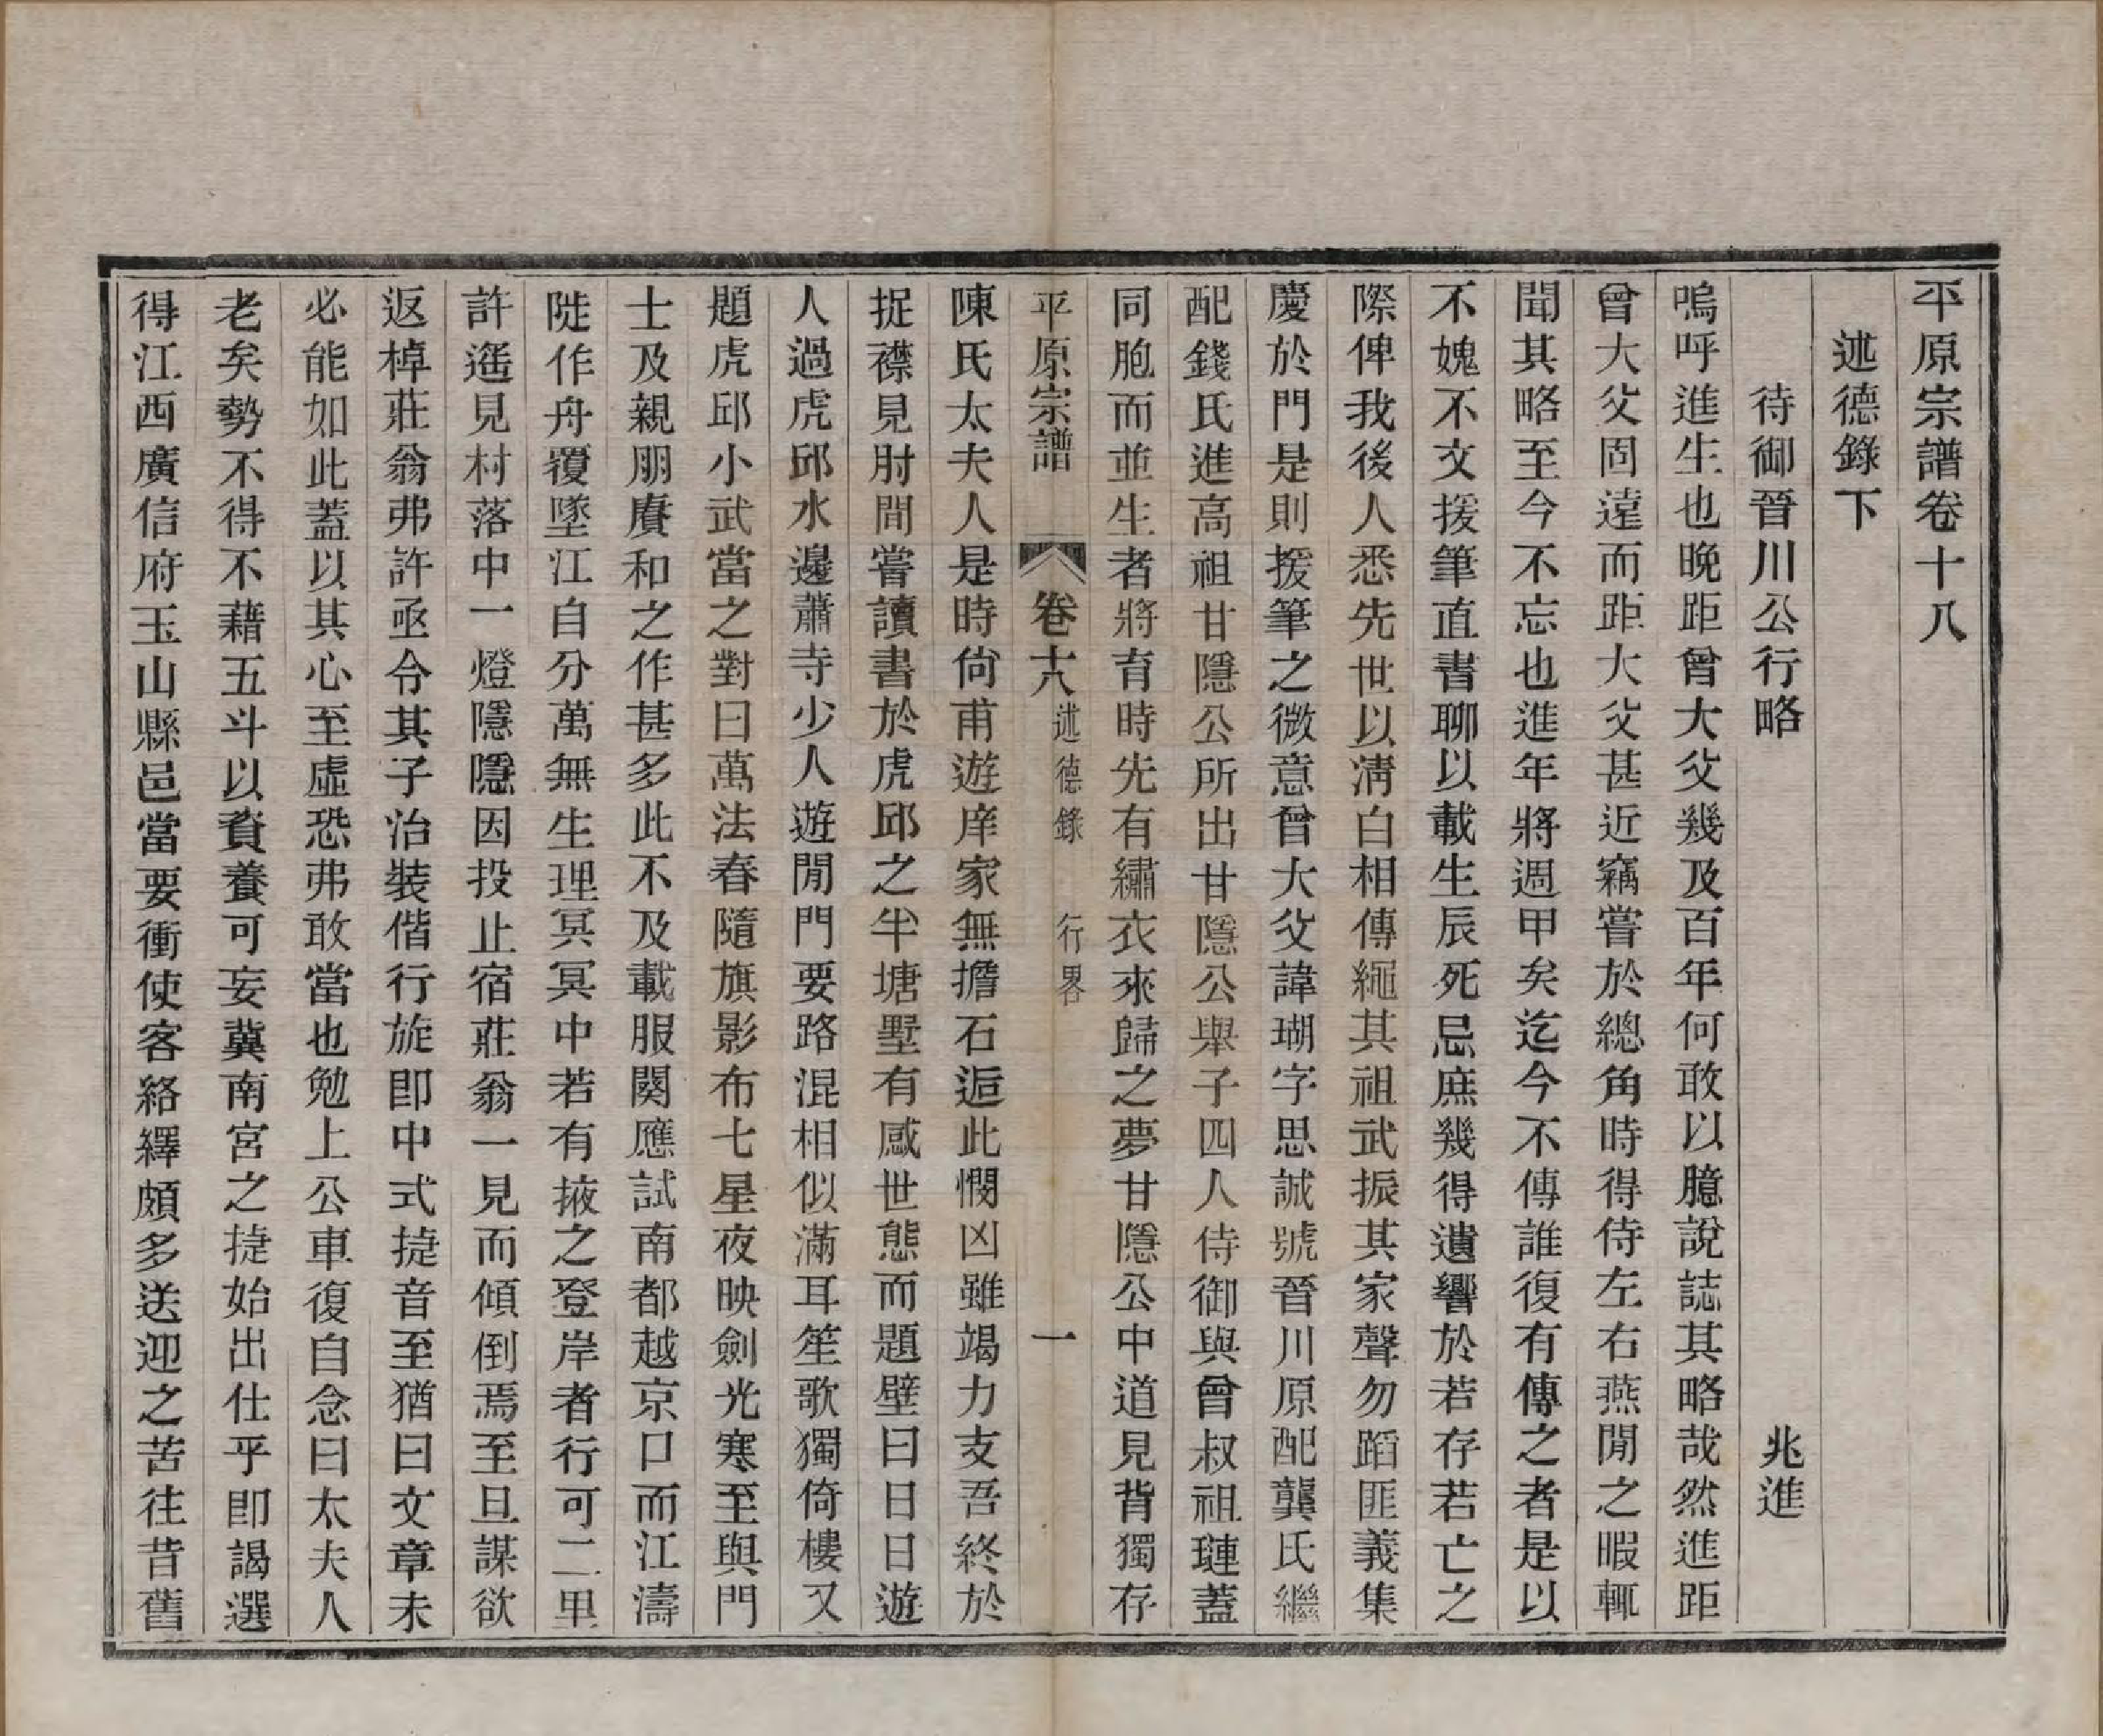 平原宗譜卷十八
述德錄下
待御晉川公行略 兆進
嗚呼進生也晚距曾大父幾及百年何敢以臆說誌其略哉然進距
曾大父固遠而距大父甚近竊嘗於總角時得侍左右燕閒之暇輒
聞其略至今不忘也進年將週甲矣迄今不傳誰復有傳之者是以
不媿不文援筆直書聊以載生辰死忌庶幾得遺響於若存若亡之
際俾我後人悉先世以淸白相傳繩其祖武振其家聲勿蹈匪義集
慶於門是則援筆之微意曾大父諱瑚字思誠號晉川原配龔氏繼
配錢氏進高祖甘隱公所出甘隱公舉子四人侍御與曾叔祖璉蓋
同胞而並生者將育時先有繡衣來歸之夢甘隱公中道見背獨存
平原宗譜 卷十八 述德錄 行畧 一
陳氏太夫人是時尙甫遊庠家無擔石逅此憫凶雖竭力支吾終於
捉襟見肘間嘗讀書於虎邱之半塘墅有感世態而題壁曰日日遊
人過虎邱水邊蕭寺少人遊閒門要路混相似滿耳笙歌獨倚樓又
題虎邱小武當之對曰萬法春隨旗影布七星夜映劍光寒至與門
士及親朋賡和之作甚多此不及載服闋應試南都越京口而江濤
陡作舟覆墜江自分萬無生理冥冥中若有掖之登岸者行可二里
許遙見村落中一燈隱隱因投止宿莊翁一見而傾倒焉至旦謀欲
返棹莊翁弗許亟令其子治裝偕行旋卽中式捷音至猶曰文章未
必能如此蓋以其心至虛恐弗敢當也勉上公車復自念曰太夫人
老矣勢不得不藉五斗以資養可妄冀南宮之捷始出仕乎卽謁選
得江西廣信府玉山縣邑當要衝使客絡繹頗多送迎之苦往昔舊